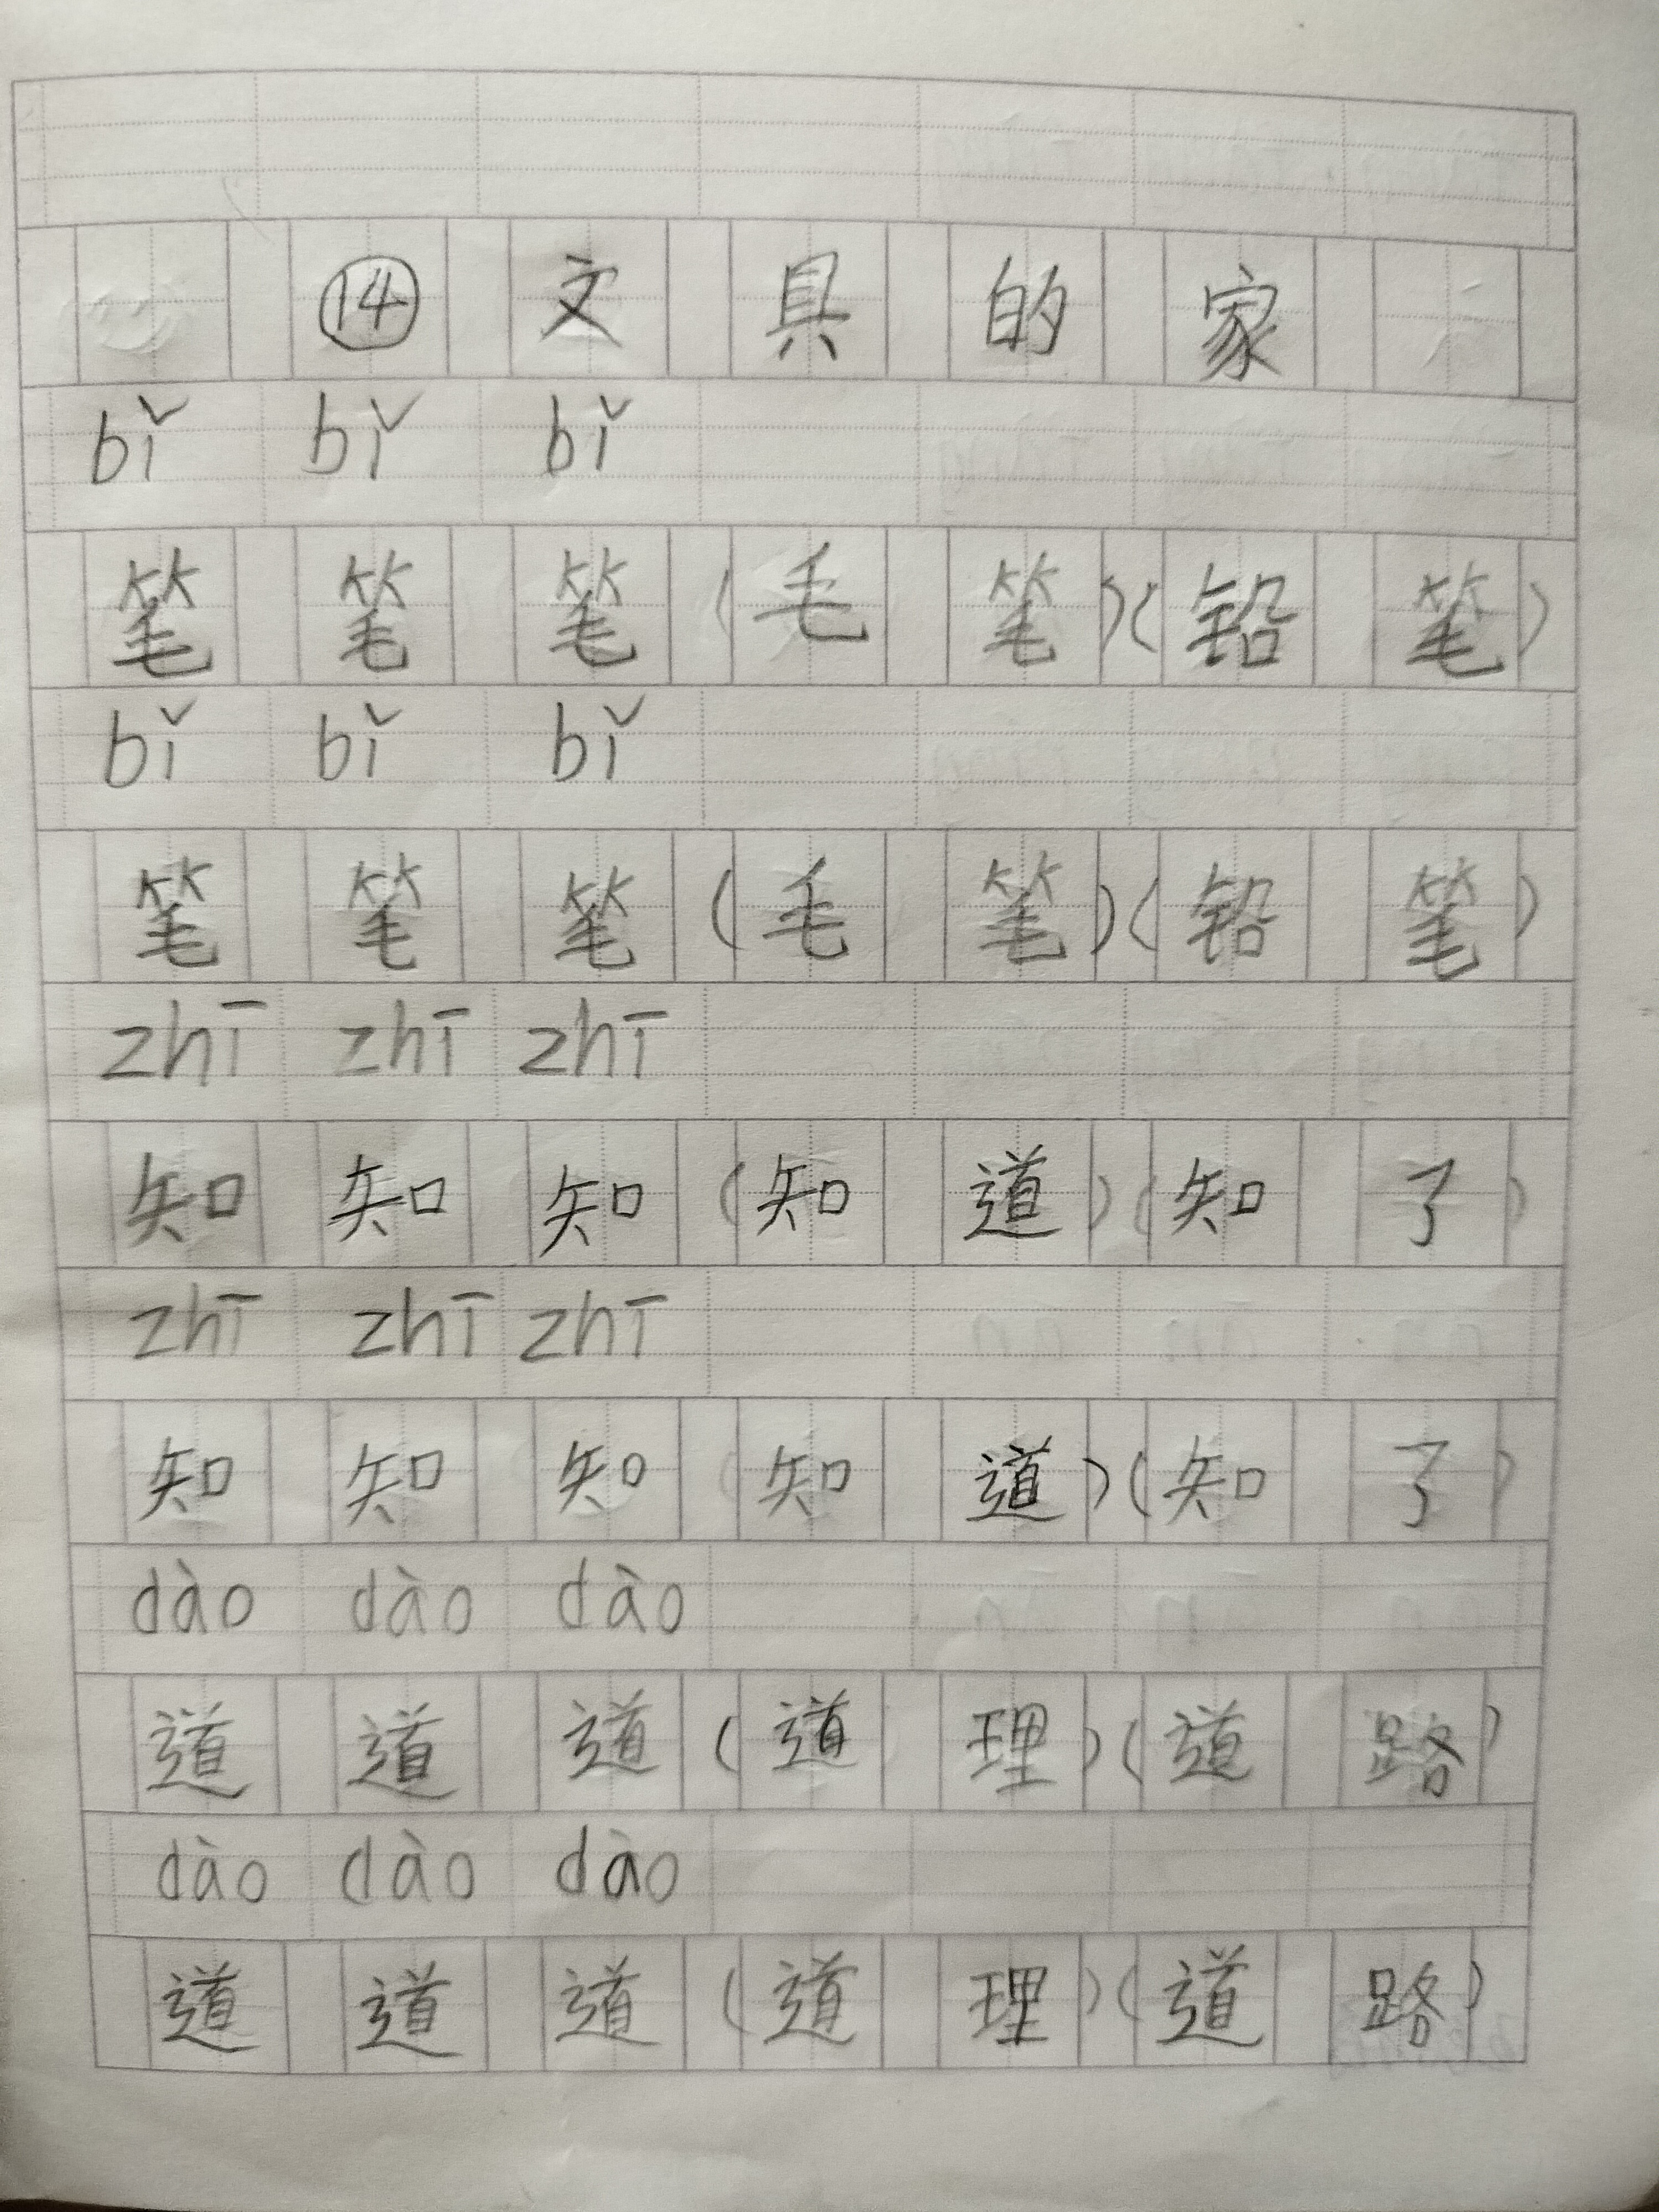 ⑭ 文具的家
bǐ bǐ bǐ
笔 笔 笔 (毛笔)(铅笔)
bǐ bǐ bǐ
笔 笔 笔 (毛笔)(铅笔)
zhī zhī zhī
知 知 知 (知道)(知了)
zhī zhī zhī
知 知 知 (知道)(知了)
dào dào dào
道 道 道 (道理)(道路)
dào dào dào
道 道 道 (道理)(道路)